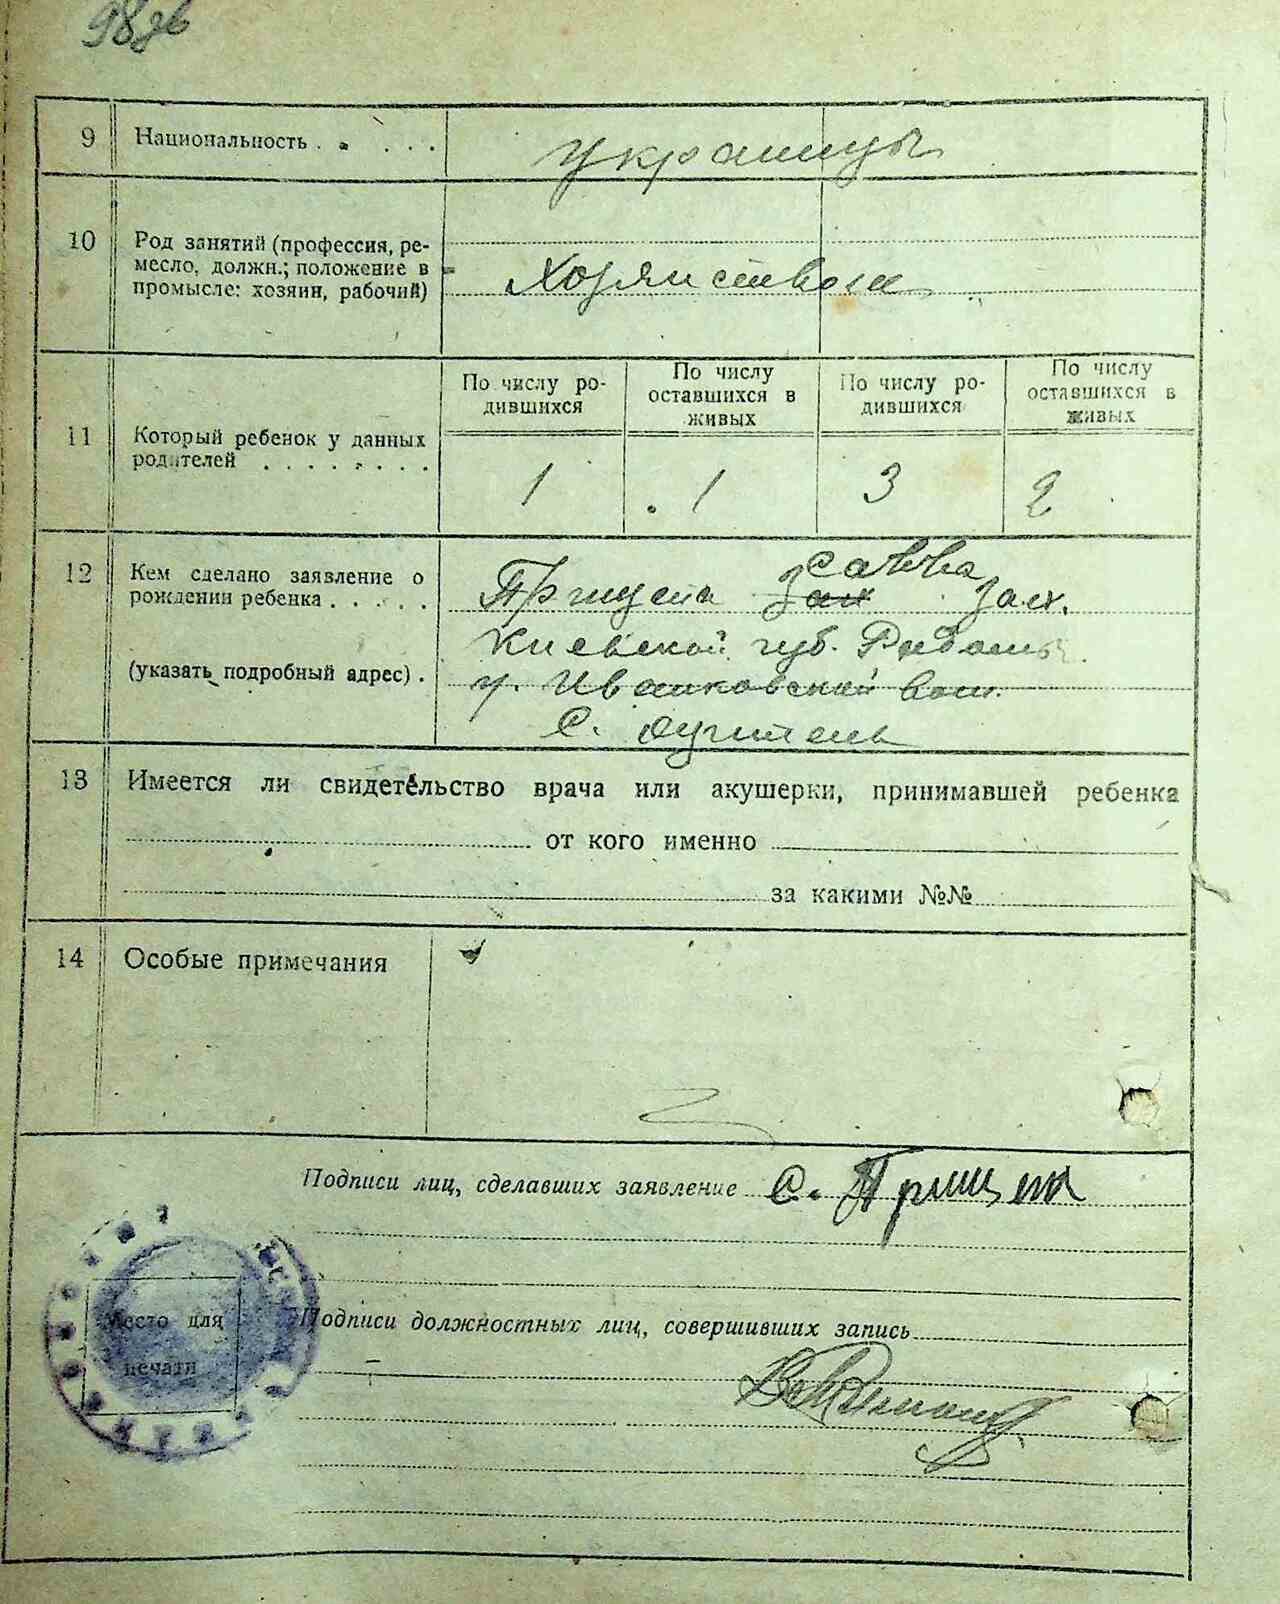 98 зв
9 Национальность . . . . .
украинцы
10 Род занятий (профессия, ре-
месло, должн.; положение в
промысле: хозяин, рабочий)
Хозяиством
По числу ро-
дившихся
По числу
оставшихся в
живых
По числу ро-
дившихся
По числу
оставшихся в
живых
11 Который ребенок у данных
родителей . . . . . . . .
1 1 3 2
12 Кем сделано заявление о
рождении ребенка . . . . .
(указать подробный адрес) .
Савва
Прищепа Зах.
Киевской губ. Радомы
у. Иванковской вол.
С.
13 Имеется ли свидетельство врача или акушерки, принимавшей ребенка
от кого именно
за какими №№
14 Особые примечания
Подписи лиц, сделавших заявление С. Прищепа
Подписи должностных лиц, совершивших запись
Место для
печати